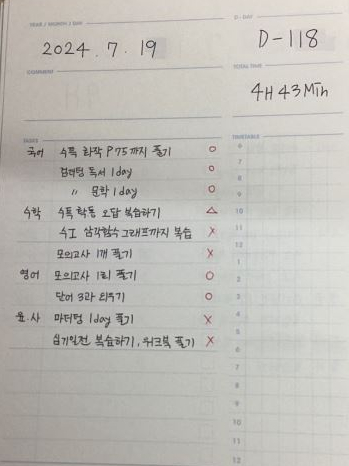 YEAR / MONTH / DAY
2024. 7. 19
D-DAY
D-118
COMMENT
TOTAL TIME
4H 43Min
TASKS
TIMETABLE
국어 수특 화작 P75까지 풀기 O
독서 1day O
〃 문학 1day O
수학 수특 확통 오답 복습하기 △
수I 삼각함수 그래프까지 복습 X
모의고사 1개 풀기 X
영어 모의고사 1회 풀기 O
단어 3과 외우기 O
윤.사 마더텅 1day 풀기 X
복습하기, 워크북 풀기 X
6
7
8
9
10
11
12
1
2
3
4
5
6
7
8
9
10
11
12